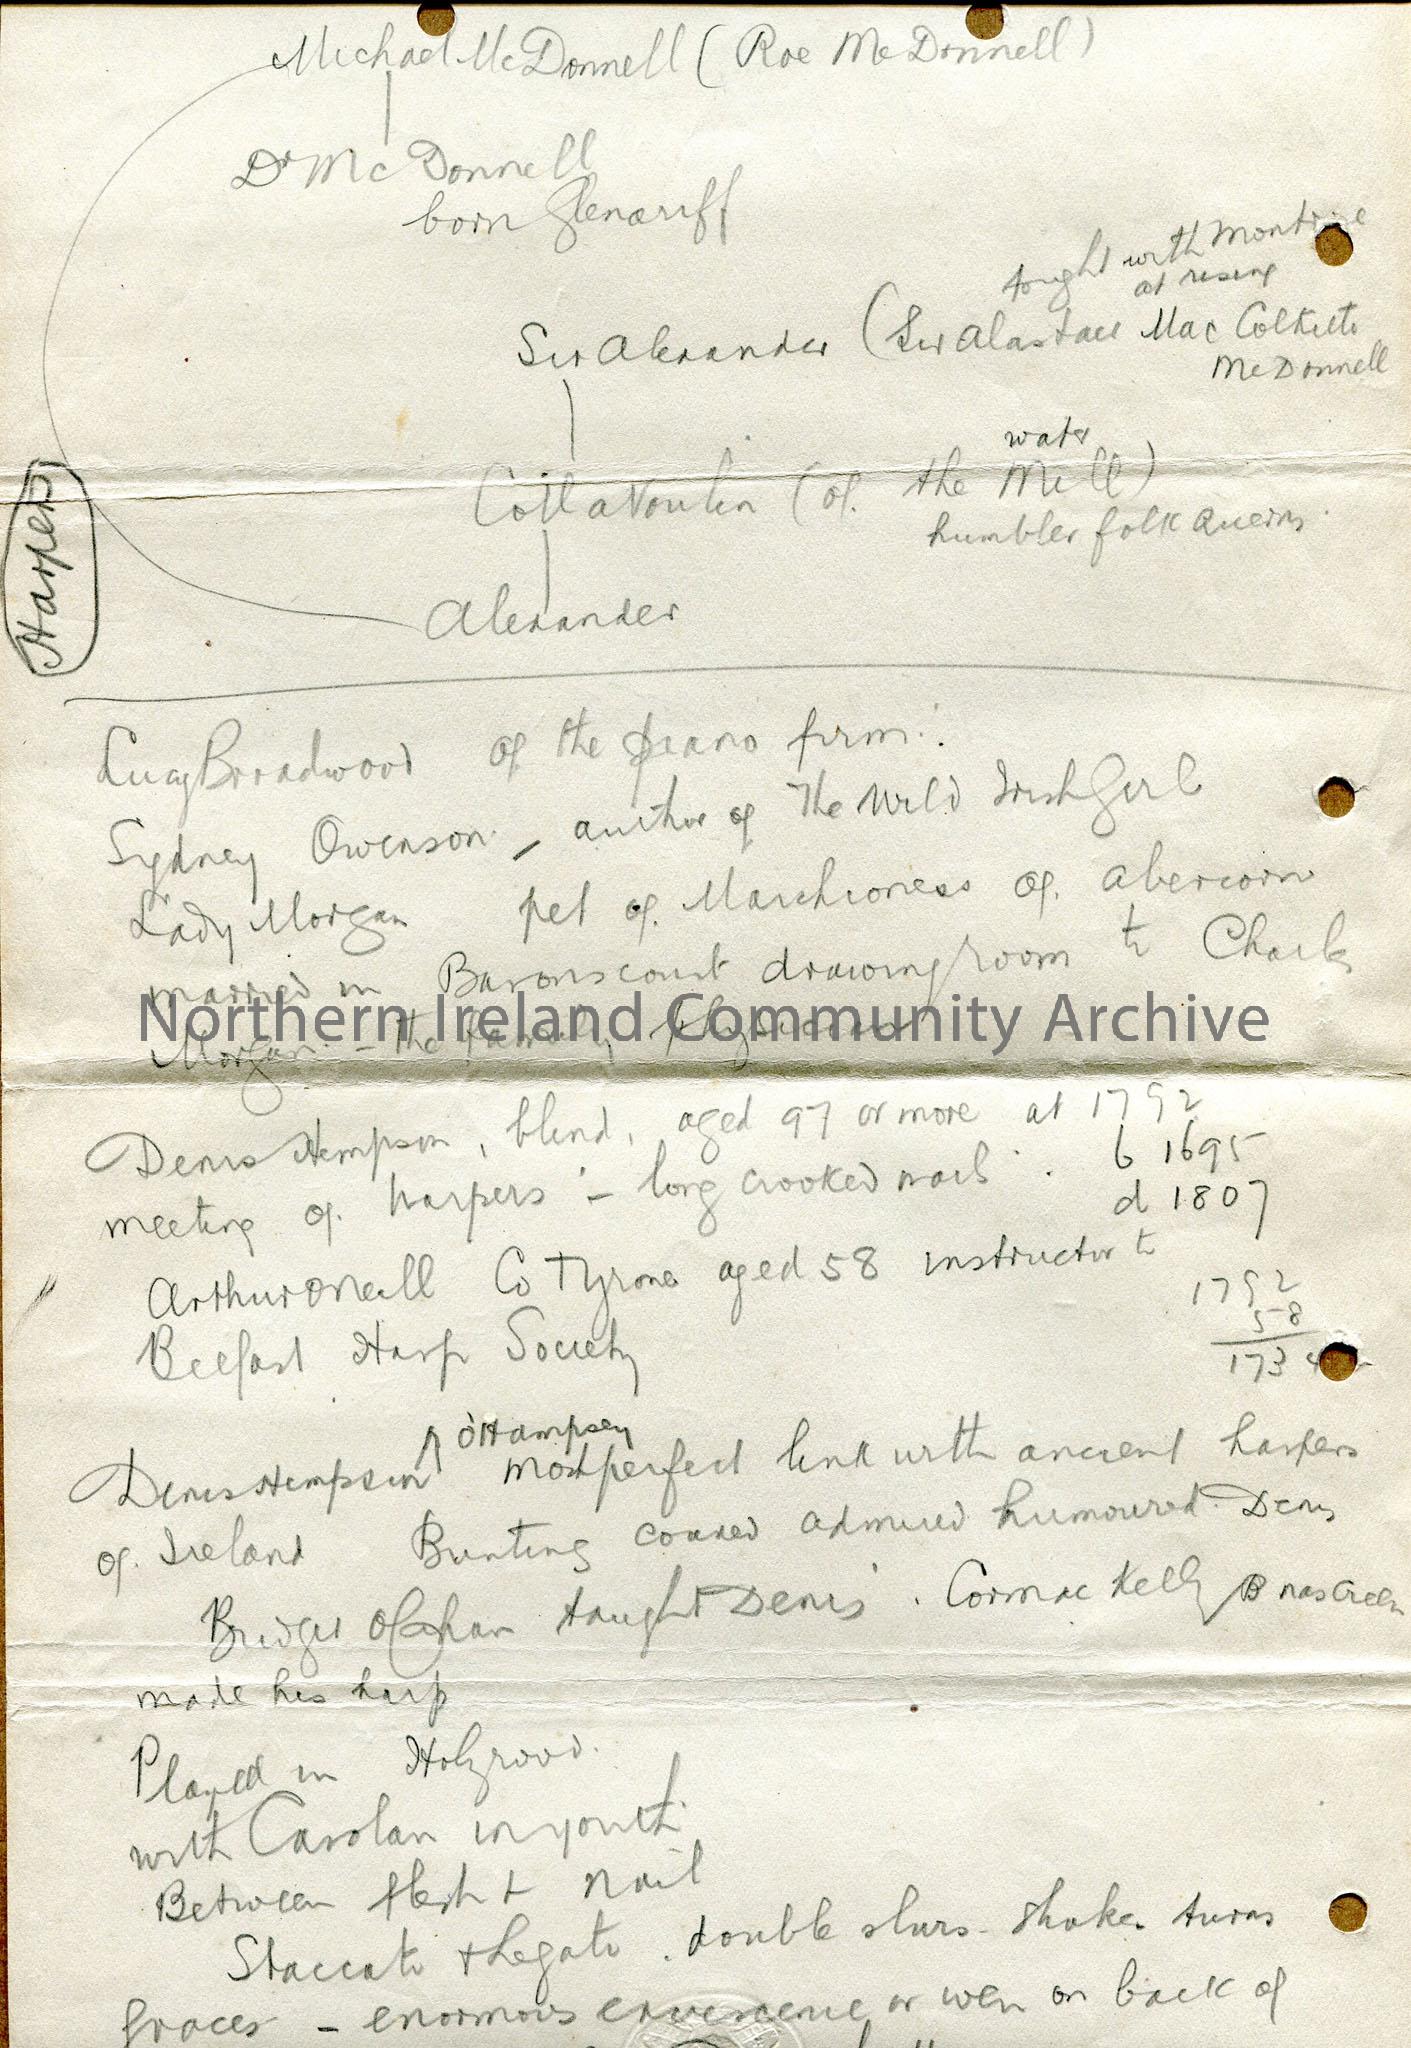 Michael McDonnell (Roe McDonnell)
Dr McDonnell
born Glenariff
fought with Montrose
at rising
Sir Alexander (Sir Alastair Mac Colkitto
McDonnell
water
Coll a Voulin (of the Mill)
humbler folk querns.
Harpers
Alexander
Lucy Broadwood of the piano firm.
Sydney Owenson - author of The Wild Irish Girl
Lady Morgan pet of Marchioness of Abercorn
married in Baronscourt drawing room to Charles
Morgan - the family physician
Denis Hempson, blind, aged 97 or more at 1792
meeting of harpers - long crooked nails. b 1695
d 1807
Arthur O Neill Co Tyrone aged 58 instructor to
Belfast Harp Society
1792
58
1734
O'Hampsey
Denis Hempson most perfect link with ancient harpers
of Ireland Bunting coaxed admired humoured Denis
Bridget O'Cahan taught Denis. Cormac Kelly B nascreen
made his harp
Played in Holyrood.
with Carolan in youth
Between flesh & nail
Staccato & legato. double slurs - shakes turns
graces - enormous excrescence or wen on back of
Northern Ireland Community Archive